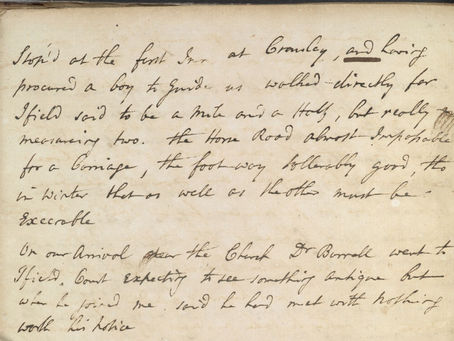 Stop'd at the first Inn at Crawley, and having
procured a boy to Guide us walked directly for
Ifield said to be a Mile and a Half, but really
measuring two. the Horse Road almost Impassable
for a Carriage, the foot way tollerably good, tho
in Winter that as well as the other must be
Execrable
On our Arrival near the Church Dr Burrell went to
Ifield Court expecting to see something antique but
when he joined me said he had met with Nothing
worth his Notice